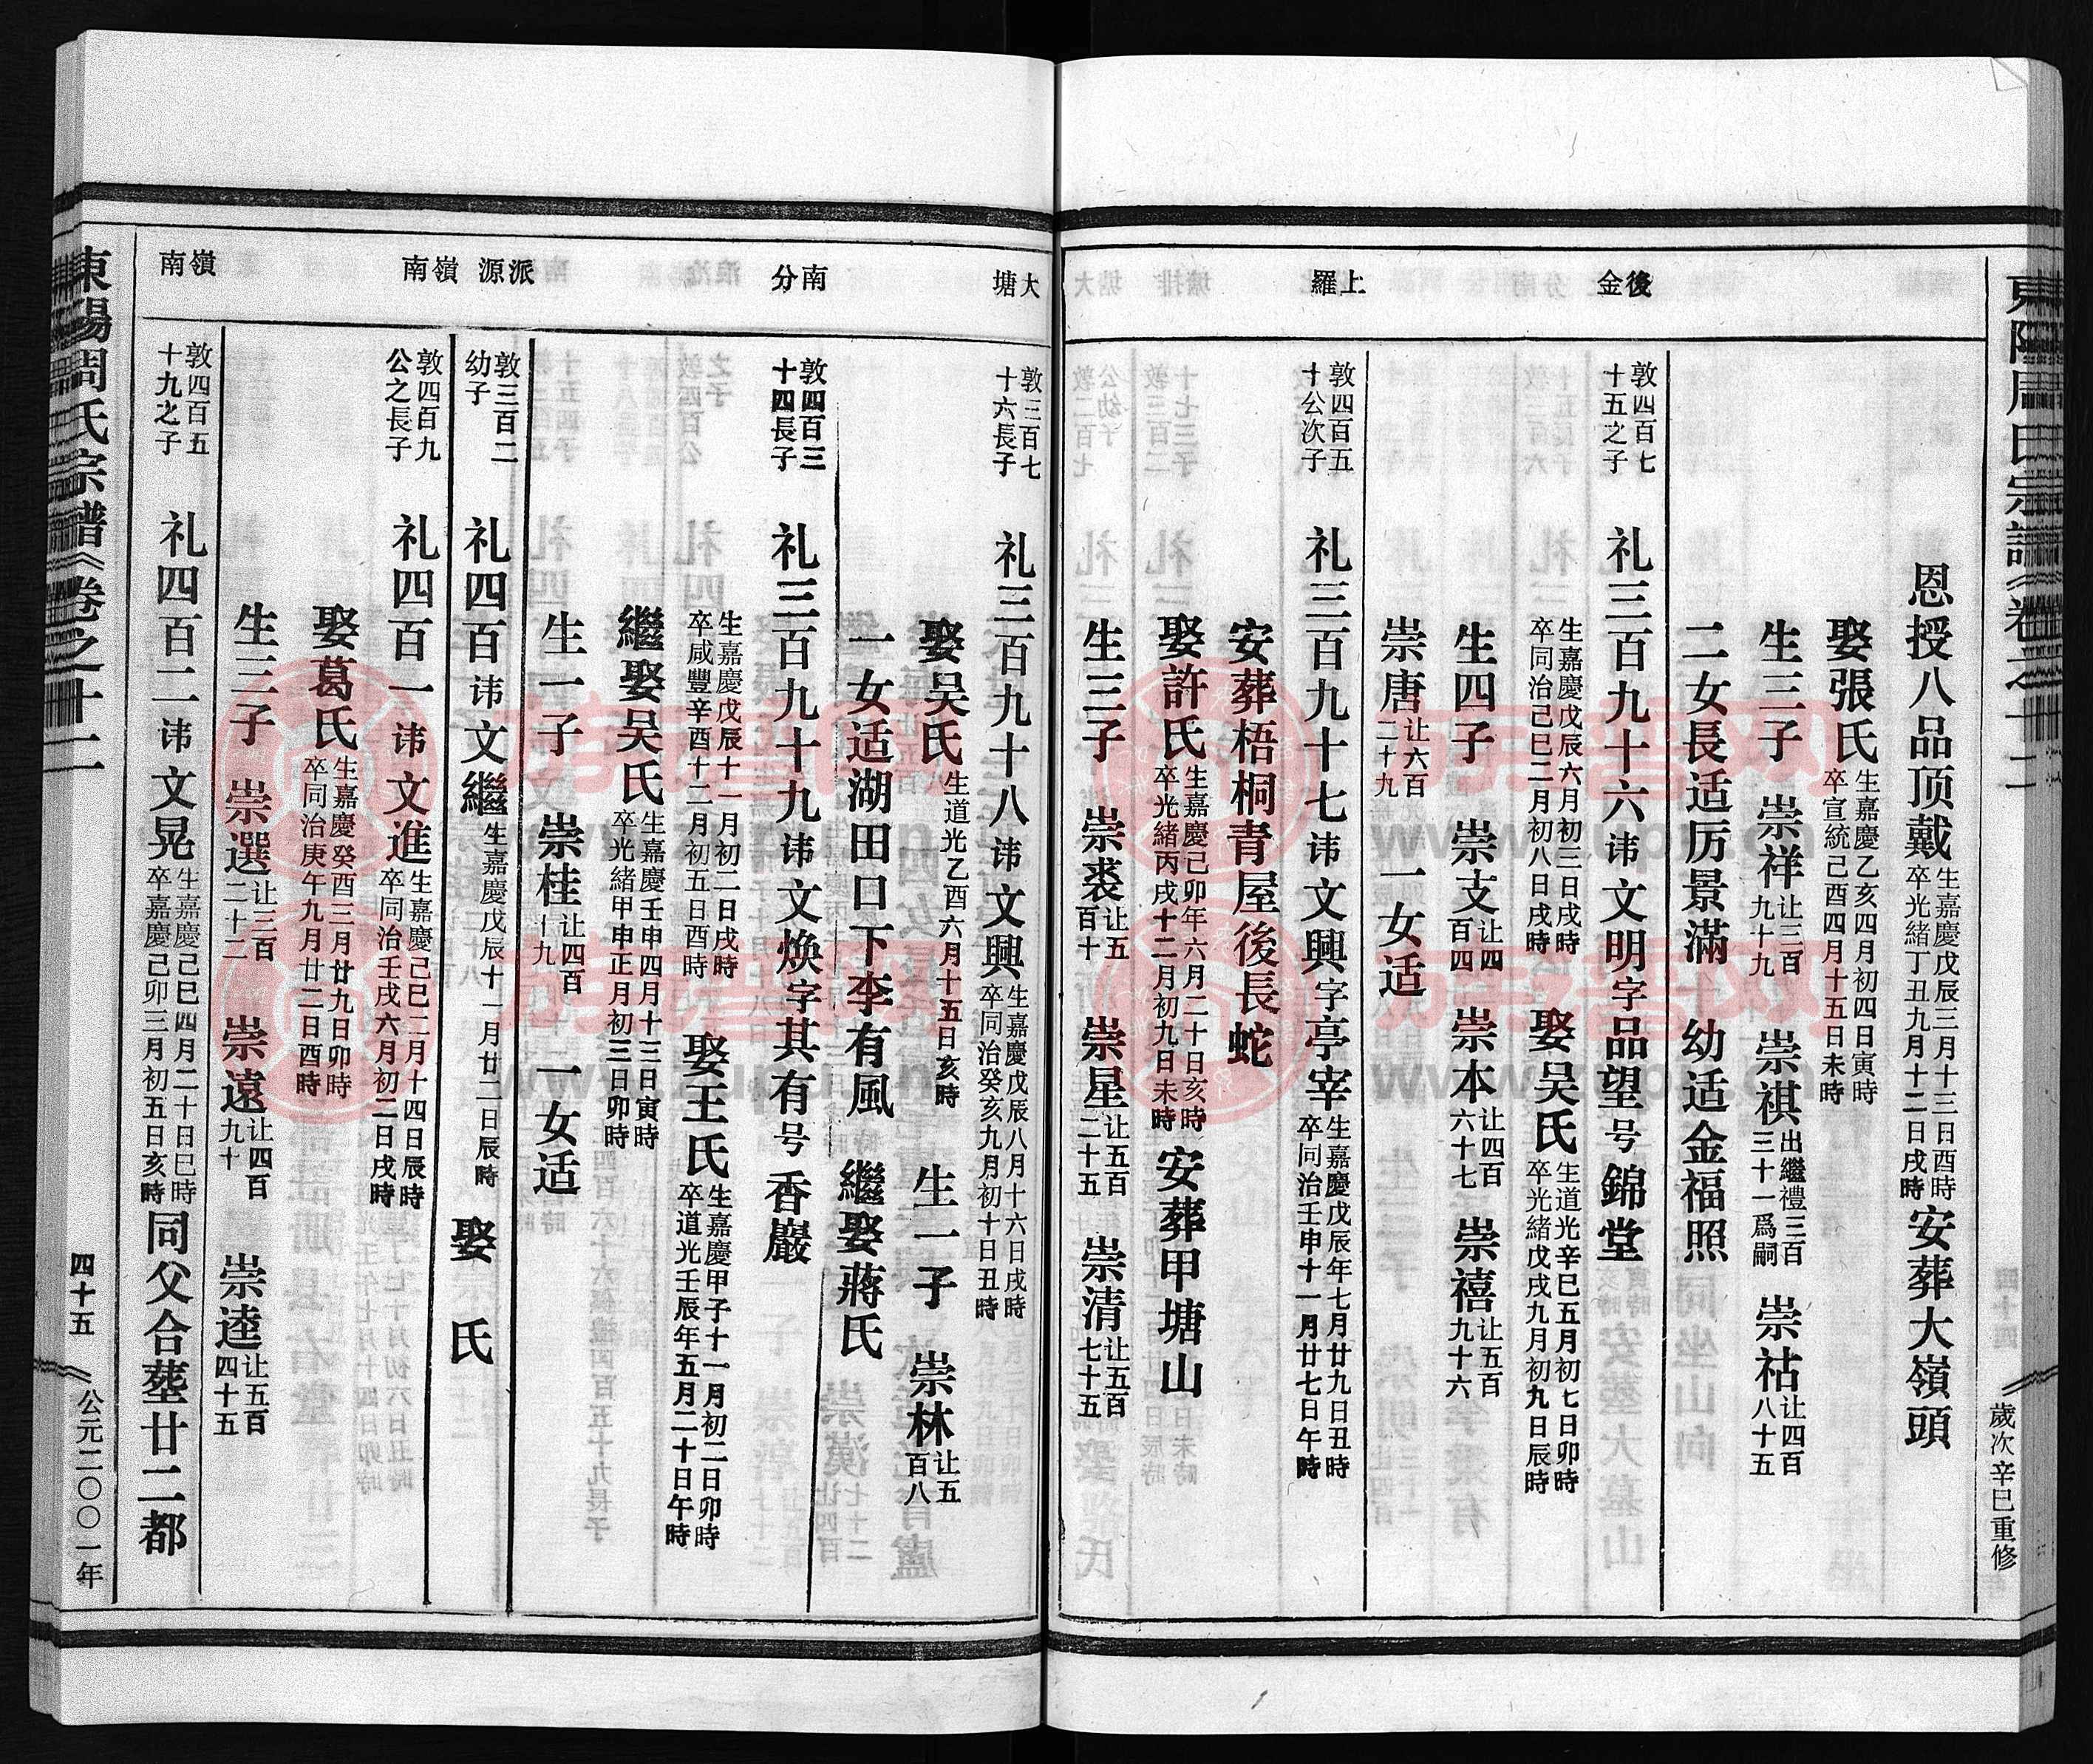 東陽周氏宗譜《卷之十二
歲次辛巳重修
恩授八品顶戴 生嘉慶戊辰三月十三日酉時 卒光緒丁丑九月十二日戌時 安葬大嶺頭
娶張氏 生嘉慶乙亥四月初四日寅時 卒宣統己酉四月十五日未時
生三子 崇祥 让三百九十九 崇祺 出繼禮三百三十一爲嗣 崇祜 让四百八十五
二女長适厉景滿 幼适金福照
後金
敦四百七十五之子
礼三百九十六讳文明字品望号錦堂
生嘉慶戊辰六月初三日戌時 卒同治己巳二月初八日戌時 娶吴氏 生道光辛巳五月初七日卯時 卒光緒戊戌九月初九日辰時
生四子 崇支 让四百四 崇本 让四百六十七 崇禧 让五百九十六
崇唐 让六百二十九 一女适
上羅
敦四百五十公次子
礼三百九十七讳文興字亭宰 生嘉慶戊辰年七月廿九日丑時 卒同治壬申十一月廿七日午時
安葬梧桐青屋後長蛇
娶許氏 生嘉慶己卯年六月二十日亥時 卒光緒丙戌十二月初九日未時 安葬甲塘山
生三子 崇裘 让五百十 崇星 让五百二十五 崇清 让五百七十五
大塘
敦三百七十六長子
礼三百九十八讳文興 生嘉慶戊辰八月十六日戌時 卒同治癸亥九月初十日丑時
娶吴氏 生道光乙酉六月十五日亥時 生一子 崇林 让五百八
一女适湖田口下李有風 繼娶蔣氏
南分
敦四百三十四長子
礼三百九十九讳文焕字其有号香巖
生嘉慶戊辰十一月初二日戌時 卒咸豐辛酉十二月初五日酉時 娶王氏 生嘉慶甲子十一月初二日卯時 卒道光壬辰年五月二十日午時
繼娶吴氏 生嘉慶壬申四月十三日寅時 卒光緒甲申正月初三日卯時
生一子 崇桂 让四百十九 一女适
派源
敦三百二幼子
礼四百讳文繼 生嘉慶戊辰十一月廿二日辰時 娶 氏
嶺南
敦四百九公之長子
礼四百一讳文進 生嘉慶己巳二月十四日辰時 卒同治壬戌六月初二日戌時
娶葛氏 生嘉慶癸酉三月廿九日卯時 卒同治庚午九月廿二日酉時
生三子 崇選 让三百二十二 崇遠 让四百九十 崇逵 让五百四十五
嶺南
敦四百五十九之子
礼四百二讳文晃 生嘉慶己巳四月二十日巳時 卒嘉慶己卯三月初五日亥時 同父合塟廿二都
東陽周氏宗譜《卷之十二
四十五
公元二〇〇一年